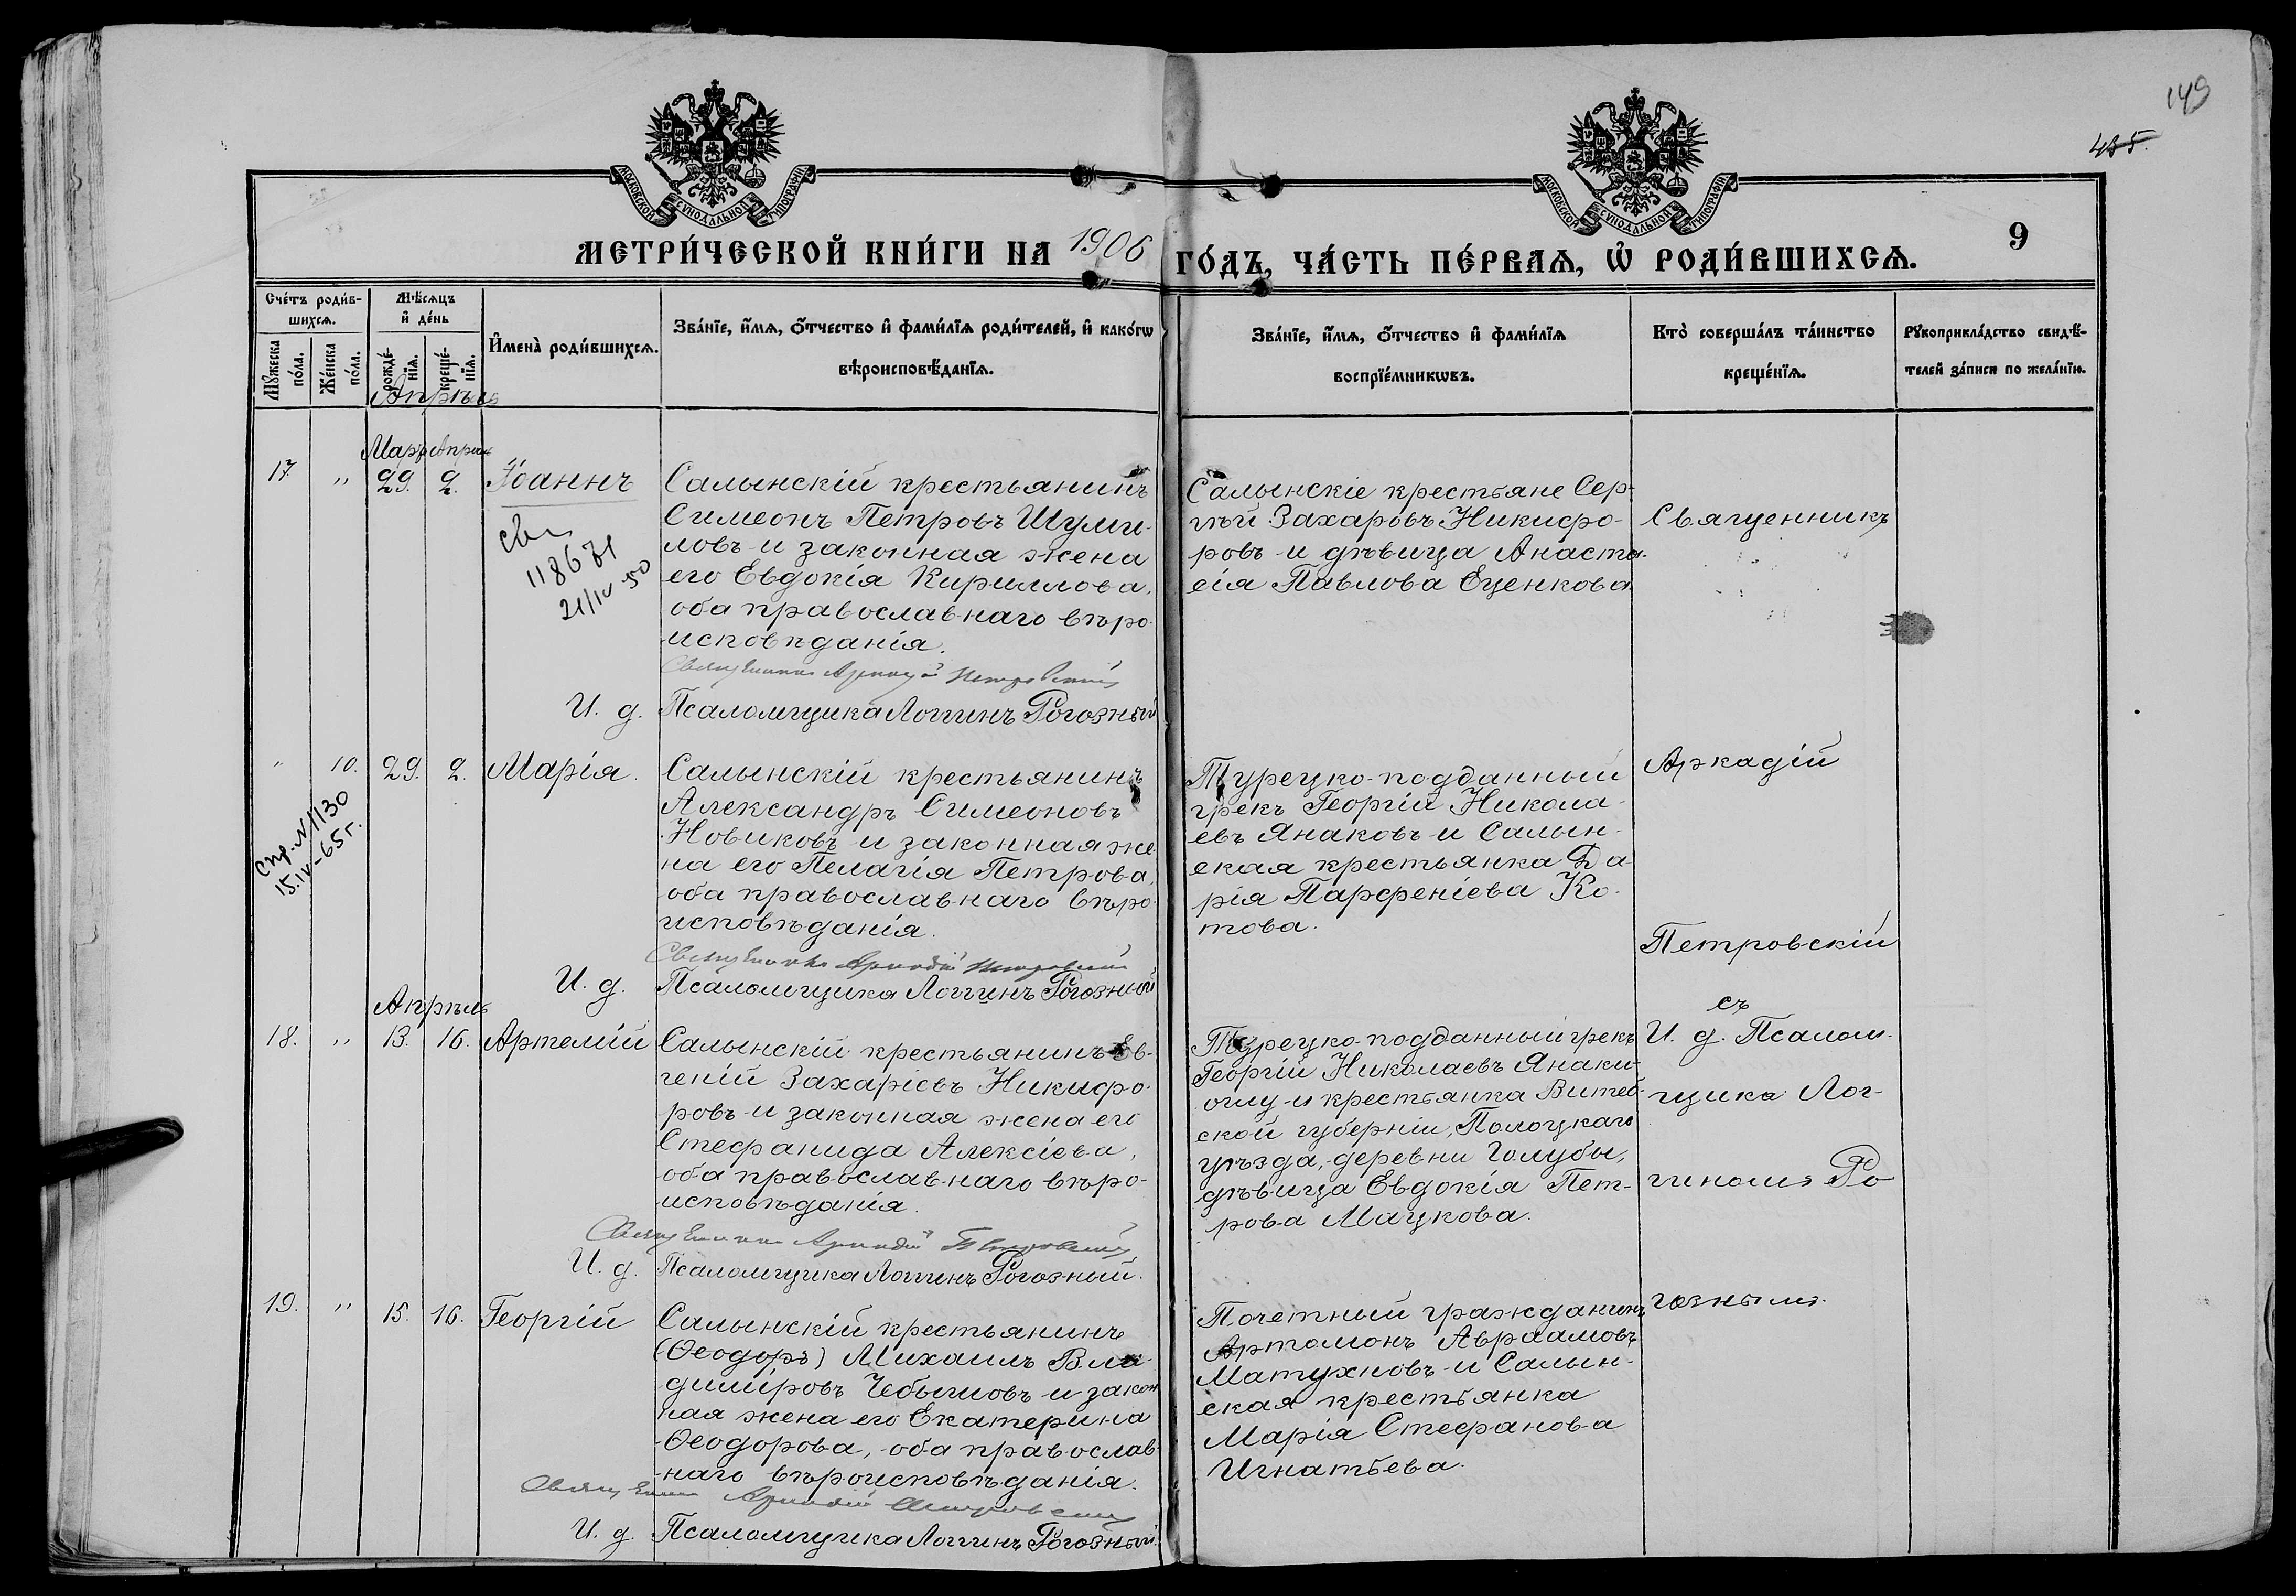 149
435.
МОСКОВСКОЙ СѴНОДАЛЬНОЙ ТИПОГРАФІИ
МОСКОВСКОЙ СѴНОДАЛЬНОЙ ТИПОГРАФІИ
МЕТРИ́ЧЕСКОЙ КНИ́ГИ НА 1906 ГО́ДЪ, ЧА́СТЬ ПЕ́РВАѦ, Ѡ҆ РОДИ́ВШИХСѦ.
9
Сче́тъ роди́в-
шихсѧ.
Мꙋ́жеска по́ла.
Же́нска по́ла.
Мѣ́сѧцъ
и҆ де́нь
рожде́-
нїѧ.
креще́-
нїѧ.
И҆мена̀ роди́вшихсѧ.
Зва́нїе, и҆́мѧ, ѻ҆́тчество и҆ фами́лїѧ роди́телей, и҆ како́гѡ
вѣроисповѣ́данїѧ.
Зва́нїе, и҆́мѧ, ѻ҆́тчество и҆ фами́лїѧ
воспрїе́мникѡвъ.
Кто̀ соверша́лъ та́инство
креще́нїѧ.
Рꙋкоприкла́дство свидѣ́-
телей за́писи по жела́нїю.
Апрѣль
Мартъ Апрѣль
17. " 29. 2. Іоаннъ
118671
21/IV-50
Салынскій крестьянинъ
Симеонъ Петровъ Шуми-
ловъ и законная жена
его Евдокія Кириллова,
оба православнаго вѣро-
исповѣданія.
Священникъ Аркадій Петровскій
И. д. Псаломщика Логгинъ Рогозный
Салынскіе крестьяне Сер-
гѣй Захаровъ Никифо-
ровъ и дѣвица Анаста-
сія Павлова Еценкова
Священникъ
" 10. 29. 2. Марія.
Спр. N 1130
15.IV-65г.
Салынскій крестьянинъ
Александръ Симеоновъ
Новиковъ и законная же-
на его Пелагія Петрова,
оба православнаго вѣро-
исповѣданія.
Священникъ Аркадій Петровскій
И. д. Псаломщика Логгинъ Рогозный
Турецко-подданный
грекъ Георгій Никола-
евъ Янаковъ и Салын-
ская крестьянка Да-
рія Парфеніева Ко-
това.
Аркадій
Петровскій
Апрѣль
18. " 13. 16. Артемій
Салынскій крестьянинъ Ев-
геній Захаріевъ Никифо-
ровъ и законная жена его
Стефанида Алексіева,
оба православнаго вѣро-
исповѣданія.
Священникъ Аркадій Петровскій
И. д. Псаломщика Логгинъ Рогозный.
Турецко-подданный грекъ
Георгій Николаевъ Янаки-
оглу и крестьянка Витеб-
ской губерніи, Полоцкаго
уѣзда, деревни Голубы,
дѣвица Евдокія Пет-
рова Мацкова.
съ
И. д. Псалом-
щика Лог-
гиномъ Ро
гознымъ.
19. " 15. 16. Георгій
Салынскій крестьянинъ
(Ѳеодоръ) Михаилъ Вла-
диміровъ Чебышовъ и закон
ная жена его Екатерина
Ѳеодорова, оба православ-
наго вѣроисповѣданія.
Священникъ Аркадій Петровскій
И. д. Псаломщика Логгинъ Рогозный.
Почетный гражданинъ
Артомонъ Авраамовъ
Матухновъ и Салын-
ская крестьянка
Марія Стефанова
Игнатьева.